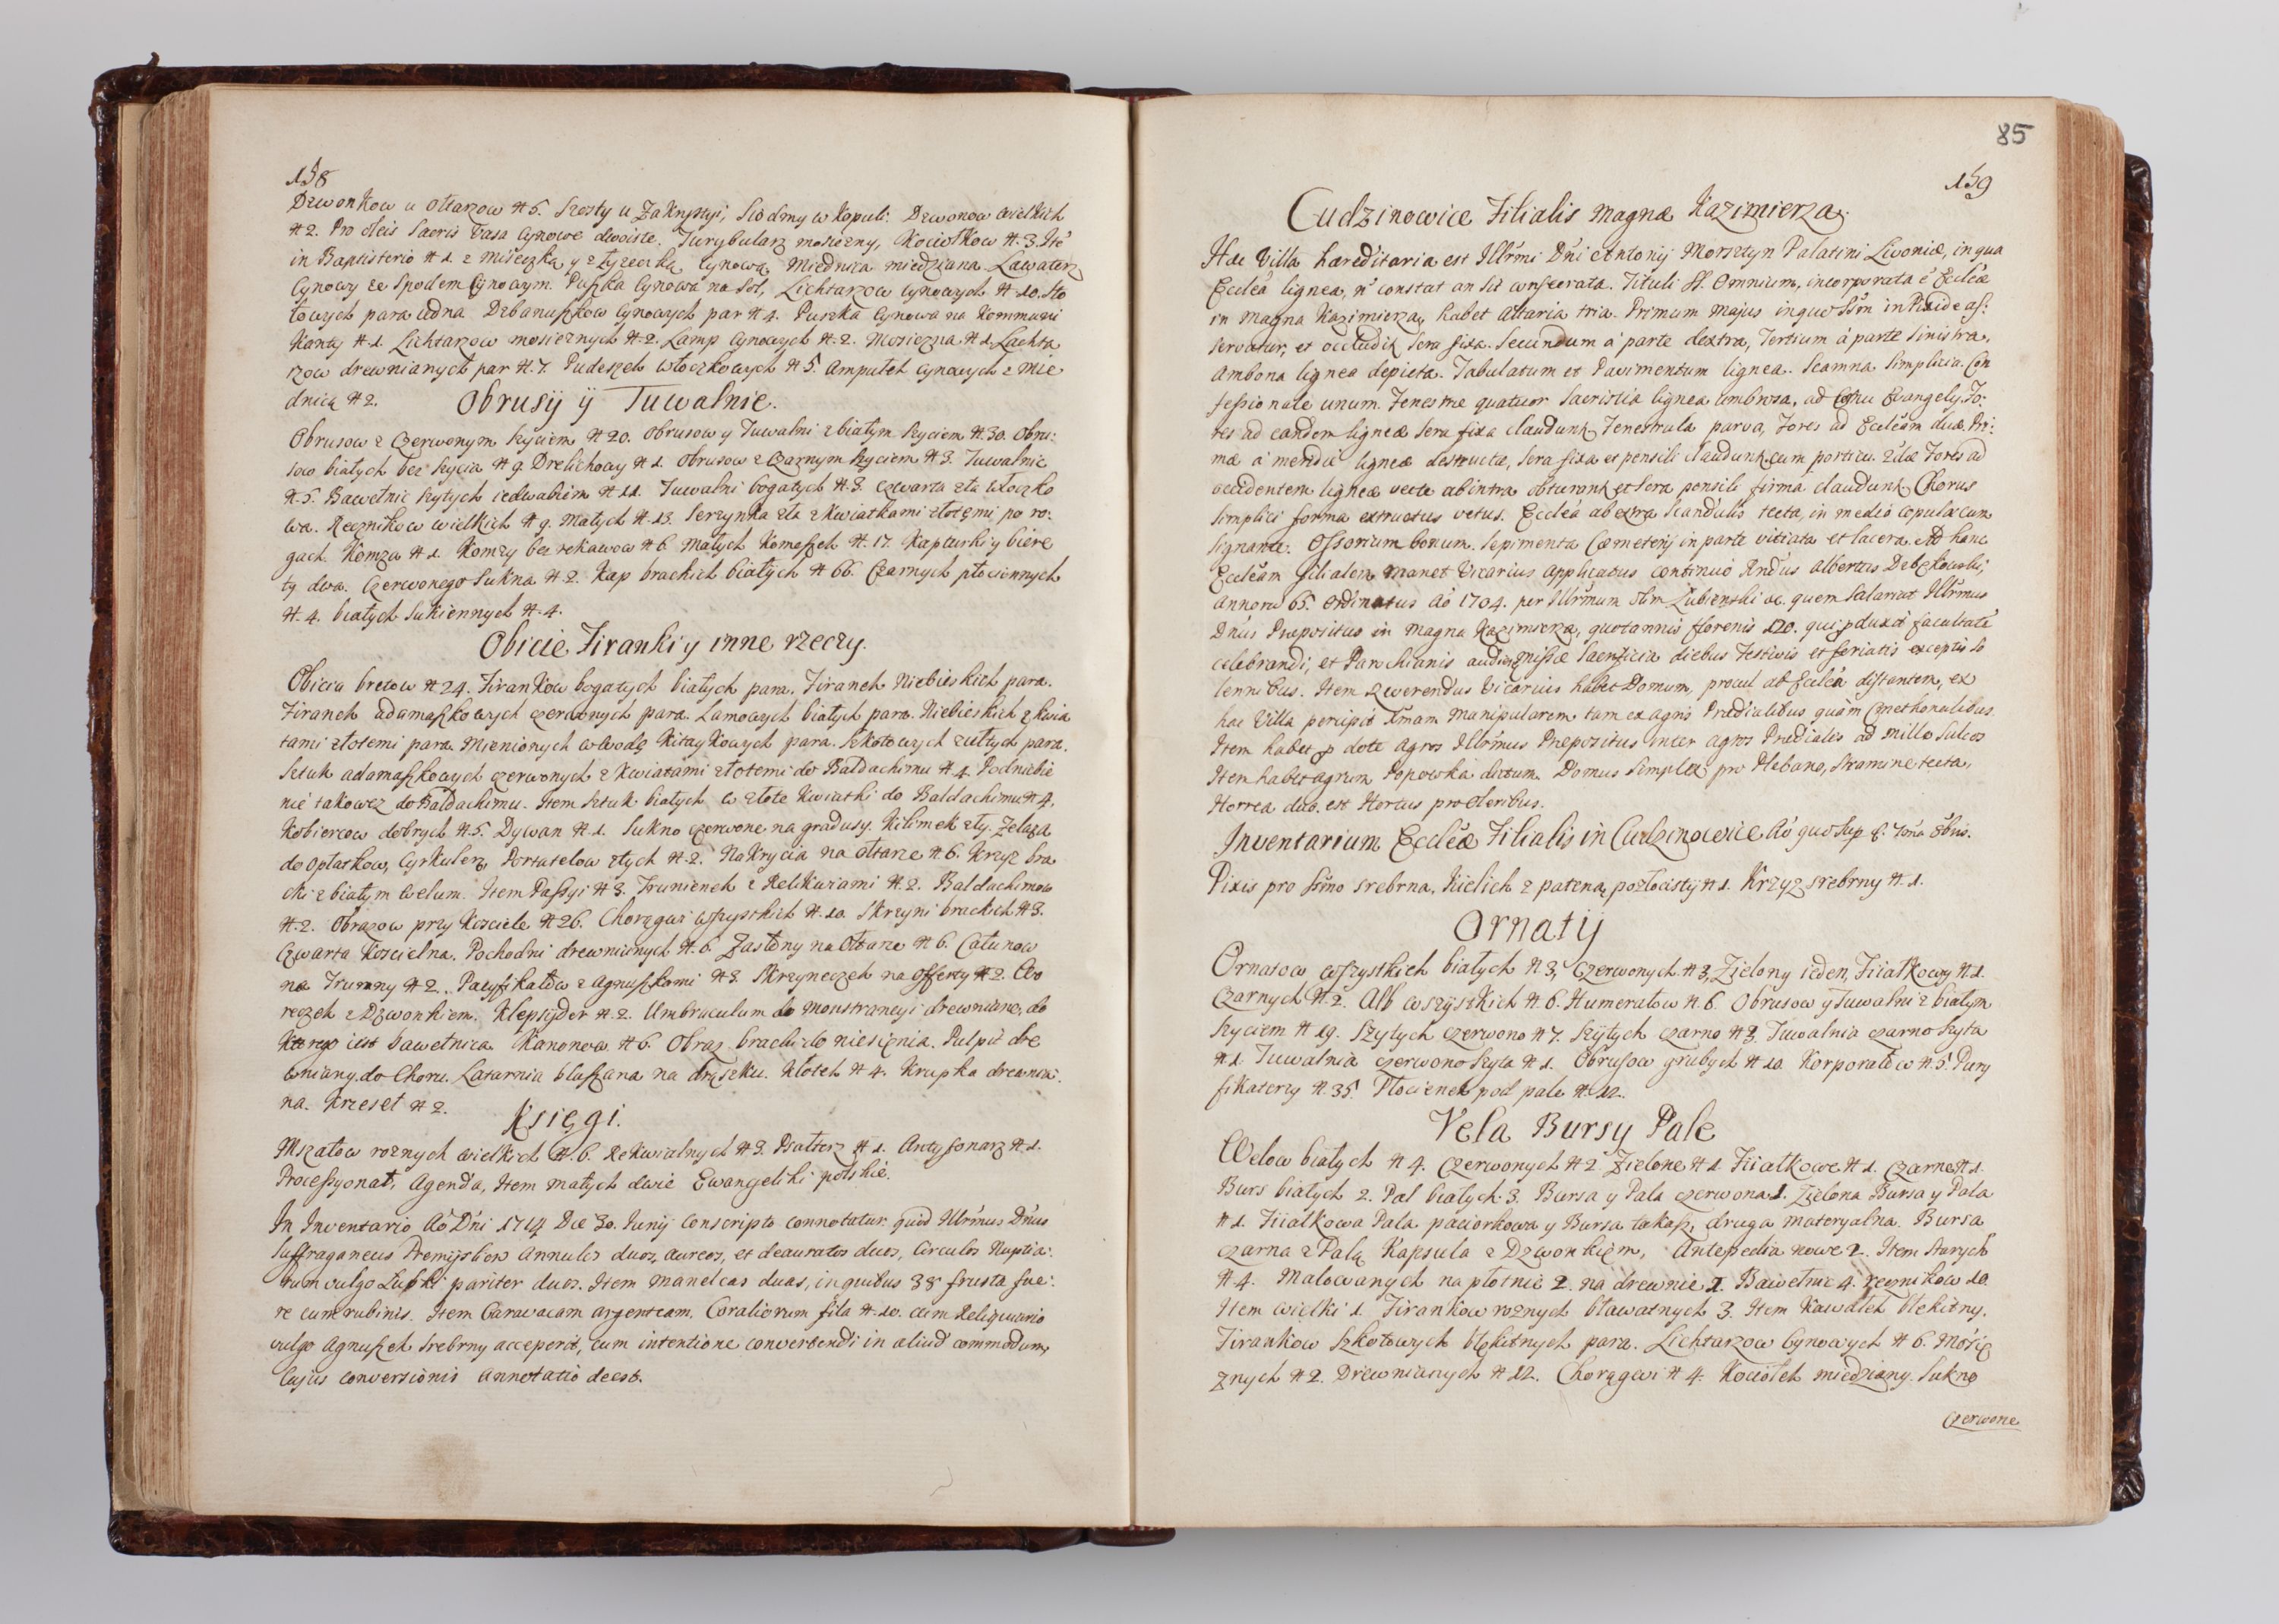 158
Dzwonkow u ołtarzow # 5. Szosty u Zakrystyi, Siodmy w Kopuli. Dzwonow wielkich
# 2. Pro oleis Sacris Vasa Cynowe dwoiste. Turybularz mosiezny, Kociołkow #. 3. Ite
in Baptisterio # 1 z miseczką y z łyzeczką Cynową, Miednica miedziana Lawaterz
Cynowy ze spodem Cynowym. Puszka Cynowa na Sol, Lichtarzow cynowych # 10. Sto
łowych para iedna Dzbanuszkow Cynowych par # 4. Puszka Cynowa na Kommuni
Kanty # 1. Lichtarzow mosieznych # 2. Lamp Cynowych #. 2. Mosiezna # 1 Lichta
rzow drewnianych par #. 7. Pudeszek włoczkowych # 5. Ampułek Cynowych z mie
dnicą # 2.
Obrusÿ ÿ Tuwalnie.
Obrusow z Czerwonym szyciem # 20. Obrusow y Tuwalni z białym szyciem #. 30. Obru:
sow białych bez szycia # 9. Drelichowy # 1. Obrusow z Czarnym szyciem # 3. Tuwalnie
#. 5. Bawełnic szytych iedwabiem # 11. Tuwalni bogatych #. 3. czwarta zła włoczko
wa. Ręcznikow wielkich # 9. małych # 13. Serzynka zła z kwiatkami złotemi po ro:
gach. Komza # 1. Komzy bez rekawow # 6. małych Komeszek #. 17. Kapturki y bire
ty dwa. Czerwonego Sukna # 2. Kap brackich białych # 66. Czarnych płociennych
#. 4. białych Sukiennych #. 4.
Obicie Firanki y inne rzeczy.
Obicia bretow # 24. Firankow bogatych białych para. Firanek Niebieskich para.
Firanek adamaszkowych czerwonych para. Lamowych białych para. Niebieskich z kwia
tami złotemi para. Mienionych w wodę Kitaykowych para. Szkotowych żułtych para.
Sztuk adamaszkowych czerwonych z kwiatami złotemi do Baldachimu # 4. Podniebie
nie takowez do Baldachimu. Item sztuk białych w złote kwiatki do Baldachimu # 4.
Kobiercow dobrych #. 5. Dywan # 1. Sukno czerwone na gradusy. Kilimek zły. Zelaza
do opłatkow, Cyrkulerz Portatelow złych #. 2. Nakrycia na ołtarze # 6. Krzyz bra
cki z białym Welum. Item Passyi # 3. Trunienek z Relikwiami #. 2. Baldachimow
#. 2. Obrazow przy Kosciele # 26. Choręgwi wszystkich #. 10. Skrzyni brackich # 3.
Czwarta Koscielna. Pochodni drewnianych #. 6 Zasłony na Ołtarze # 6. Całunow
na Trumny # 2. Pacyfikałow z Agnuszkami # 3. Skrzyneczek na offerty # 2. Wo
reczek z Dzwonkiem. Klepsyder # 2. Umbraculum do monstrancyi drewniane, do
ktorego iest bawełnica. Kanonow # 6. Obraz bracki do niesienia. Pulpit dre
wniany do Choru. Latarnia blaszana na drązku. Kłotek # 4. Krupka drewnia:
na. Krzeset # 2.
Księgi.
Mszałow roznych wielkich #. 6. Rekwialnych # 3. Psałterz # 1. Antyfonarz # 1.
Processyonał, Agenda, Item małych dwie Ewangeliki polskie.
In Inventario Aō Dni 1714 Die 30. Iunij Conscripto connotatur. quod Illrmus Dnus
Suffraganeus Premysliens Annulos duos, aureos, et deauratos duos, Circulos Nuptia:
rum vulgo Łubki pariter duos. Item Manelas duas, in quibus 38 frusta fue:
re cum rubinis. Item Caravacam argenteam. Coraliorum fila #. 10. cum Reliquiario
vulgo Agnuszek srebrny acceperit, cum intentione convertendi in aliud commodum,
Cujus conversionis annotatio deest.
85
159
Cudzinowice Filialis magnæ Kazimierza.
Hæc Villa hæreditaria est Illrmi Dni Antonij Morsztyn Palatini Livoniæ, in qua
Ecclea lignea, n constat an sit consecrata. Tituli SS. Omnium, incorporata e Eccleæ
in Magna Kazimierza, habet Altaria tria. Primum majus in quo SSm in Pixide as:
servatur, et occludit sera fixa. Secundum a parte dextra, Tertium à parte sinistra,
Ambona lignea depicta. Tabulatum et Pavimentum lignea. Scamna Simplicia. Con
fessionale unum. Fenestræ quatuor Sacristia lignea umbrosa, ad Cornu Evangely. Fo:
res ad eandem ligneæ sera fixa claudunt, Fenestrula parva, Fores ad Eccleam duæ, Pri:
mæ a meridie ligneæ destructæ, sera fixa et pensili claudunt cum porticu. 2dæ Fores ad
occidentem ligneæ vecte ab intra obturant et sera pensili firma claudunt. Chorus
simplici forma extructus vetus. Ecclea ab extra scandulis tecta, in medio copulæ cum
signante. Ossorium bonum. Sepimenta Cæmeterij in parte vitiata et lacera. Ad hanc
Eccleam filialem manet Vicarius applicatus continuo Rndus Albertus
annorum 65. Ordinatus Ao 1704. per Illrmum olim Łubienski &c. quem salariat Illrmus
Dnus Præpositus in Magna Kazimierza, quotannis florenis 120. qui pduxit facultate
celebrandi, et Parochianis audiendi missæ Sacrificia diebus Festivis et feriatis exceptis So
lennibus. Item Qwerendus Vicarius habet Domum, procul ab Ecclea distantem, ex
hac Villa percipit Xmam manipularem tam ex agris Prædialibus quàm Cmethonalibus.
Item habet p dote Agros Illrmus Præpositus inter agros Prædiales ad mille sulcos
Item habet agrum Popowka dictum. Domus simplex pro Plebano, stramine tecta,
Horrea duo. est Hortus pro oleribus.
Inventarium Eccleæ Filialis in Cudzinowice Aō quo sup 8. bris.
Pixis pro SSmo srebrna, Kielich z pateną pozłocistÿ # 1. Krzyz srebrny #. 1.
Ornatÿ
Ornatow wszystkich białych # 3, Czerwonych # 3, Zielony ieden, Fiiałkowy # 1.
Czarnych #. 2. Alb wszystkich #. 6. Humerałow #. 6. Obrusow y Tuwalni z białym
szyciem # 19. Szytych czerwono # 7. Szytych czarno # 3. Tuwalnia czarno szyta
# 1. Tuwalnia czerwono szyta # 1. Obrusow grubych # 10. Korporałow #. 5. Pury
fikaterzy #. 35. Płocienek pod pale #. 12.
Vela Bursy Pale
Welow białych # 4. Czerwonych # 2. Zielone # 1 Fiiałkowe # 1. Czarne # 1.
Burs białych 2. Pal białych 3. Bursa y Pala czerwona 1. Zielona Bursa y Pala
# 1. Fiiałkowa Pala paciorkowa y Bursa takasz, druga materyalna. Bursa
czarna z Palą Kapsula z Dzwonkiem, Antepedia nowe 2. Item starych
# 4. Malowanych na płotnie 2. na drewnie 1. Bawełnic 4. ręcznikow 10.
Item wielki 1. Firankow roznych bławatnych 3. Item Kawałek błekitny.
Firankow szkotowych błękitnych para. Lichtarzow Cynowych # 6. Mosię
znych # 2. Drewnianych # 12. Choręgwi # 4. Kociołek miedziany. Sukno
czerwone